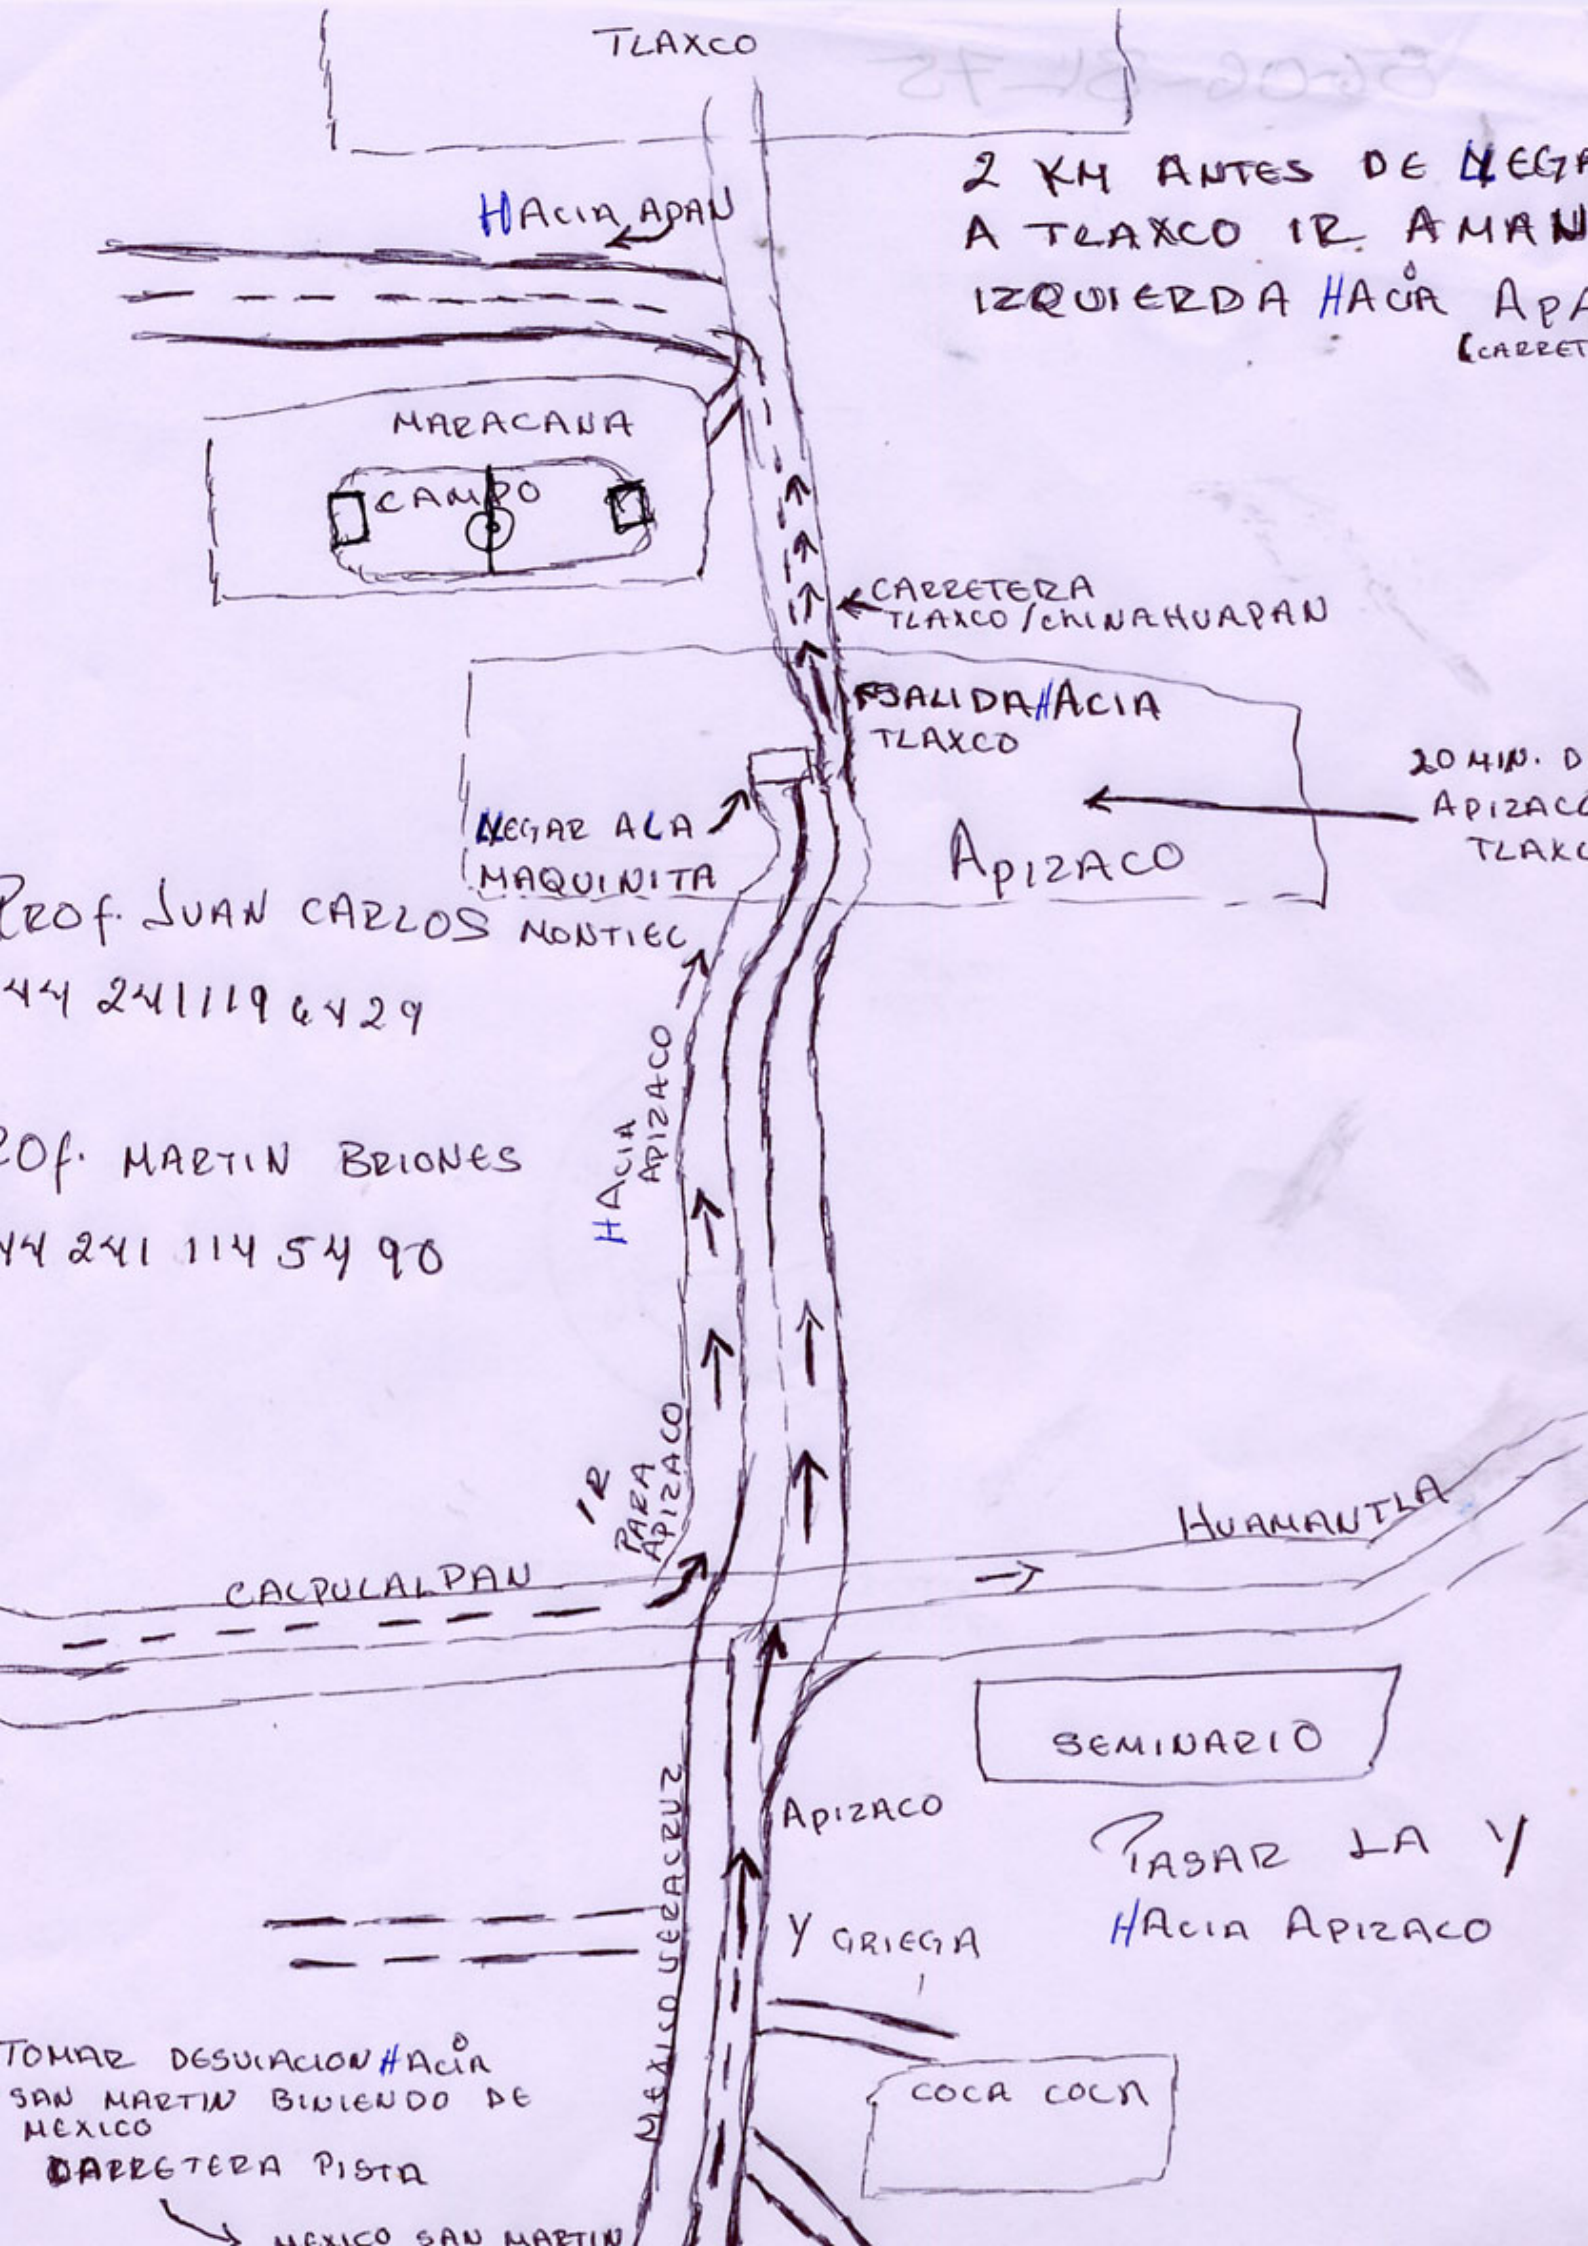 TLAXCO
2 KM ANTES DE LLEGA
A TLAXCO IR A MAN
IZQUIERDA HACIA APA
(CARRET
HACIA APAN
MARACANA
CAMPO
CARRETERA
TLAXCO/CHINAHUAPAN
SALIDA HACIA
TLAXCO
20 MIN. D
APIZACO
TLAXC
LLEGAR A LA
MAQUINITA
APIZACO
PROF. JUAN CARLOS MONTIEL
44 241119 6429
HACIA
APIZACO
ROF. MARTIN BRIONES
44 241 114 54 90
IR
PARA
APIZACO
HUAMANTLA
CALPULALPAN
SEMINARIO
MEXICO VERACRUZ
APIZACO
PASAR LA Y
HACIA APIZACO
Y GRIEGA
COCA COCA
TOMAR DESVIACION HACIA
SAN MARTIN BINIENDO DE
MEXICO
CARRETERA PISTA
MEXICO SAN MARTIN